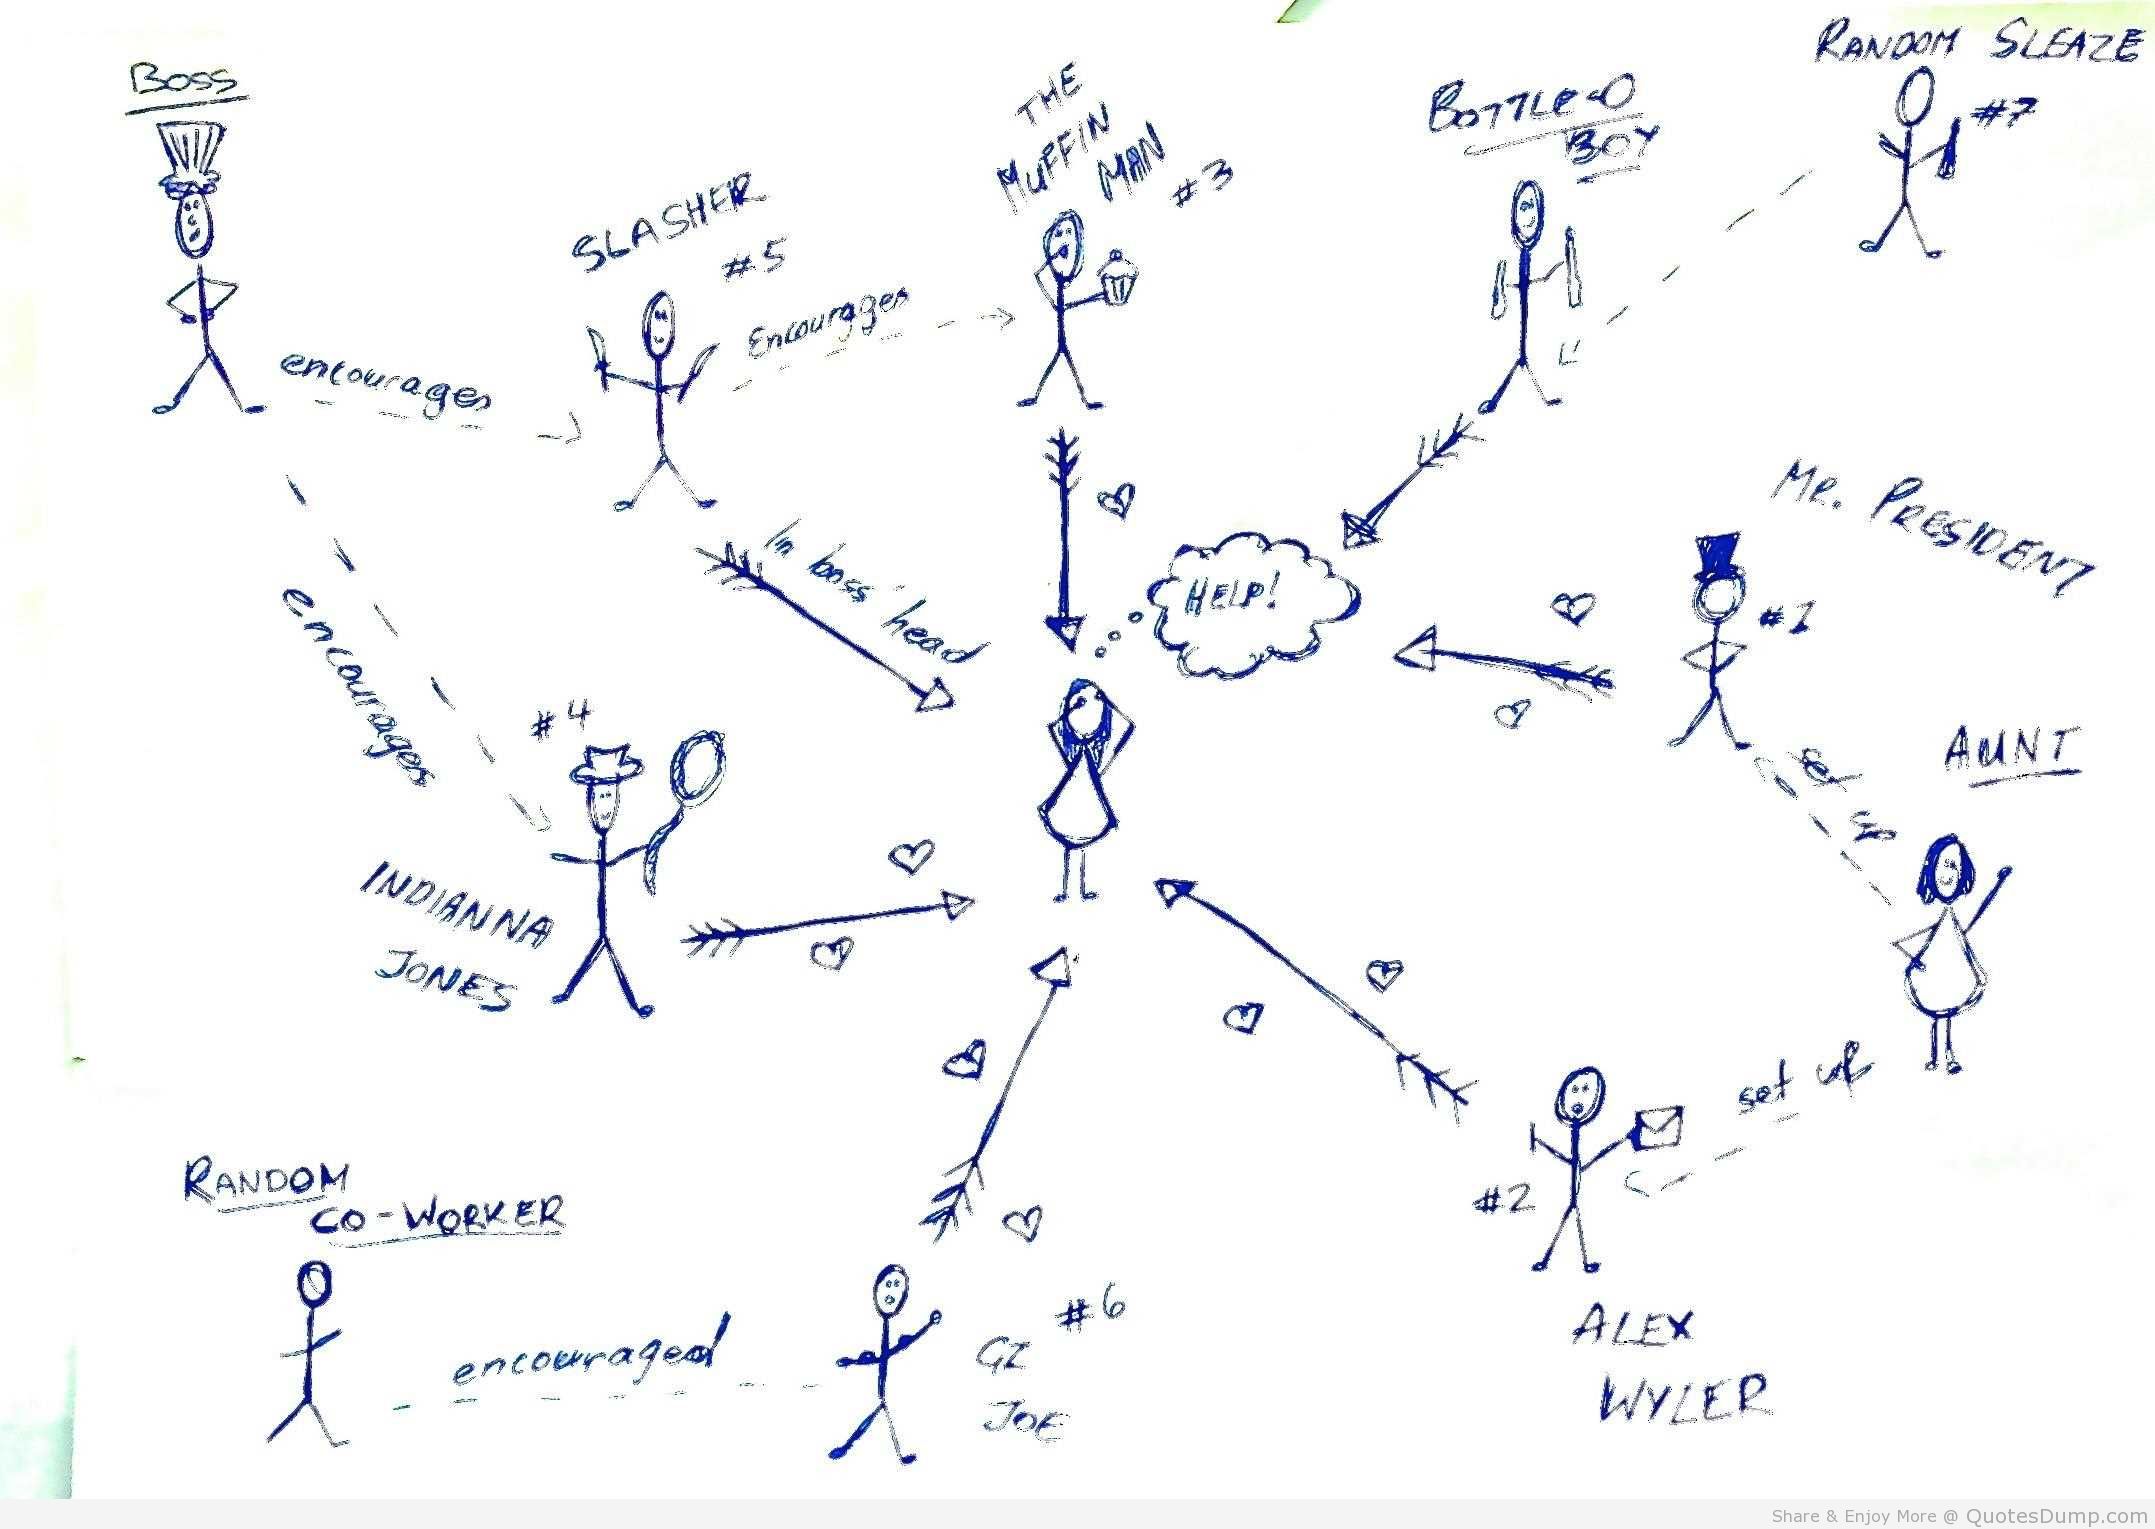 BOSS
RANDOM SLEAZE
#7
THE
MUFFIN
MAN
#3
BOTTLE-O
BOY
SLASHER
#5
encourages
Encourages
MR. PRESIDENT
#1
In boss' head
HELP!
encourages
#4
INDIANNA
JONES
AUNT
set
up
set up
#2
ALEX
WYLER
RANDOM
CO-WORKER
encouraged
#6
GI
JOE
Share & Enjoy More @ QuotesDump.com